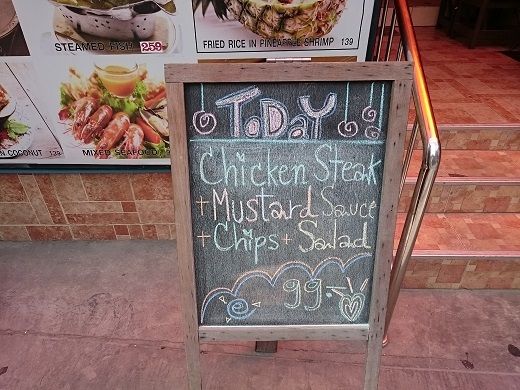 STEAMED FISH 259
FRIED RICE IN PINEAPPLE SHRIMP 139
N COCONUT 129
MIXED SEAFOOD
TODAY
Chicken Steak
+ Mustard Sauce
+ Chips + Salad
99.-